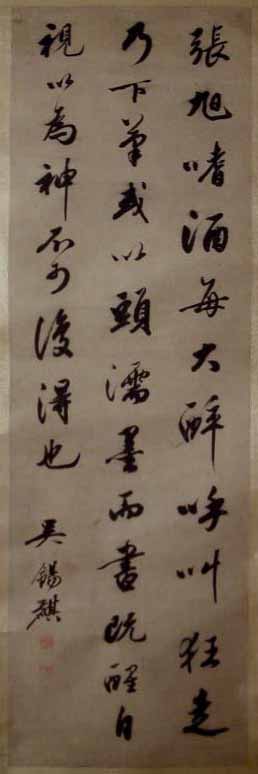 張旭嗜酒每大醉呼叫狂走
乃下筆或以頭濡墨而書既醒自
視以為神不可復得也
吳錫麒